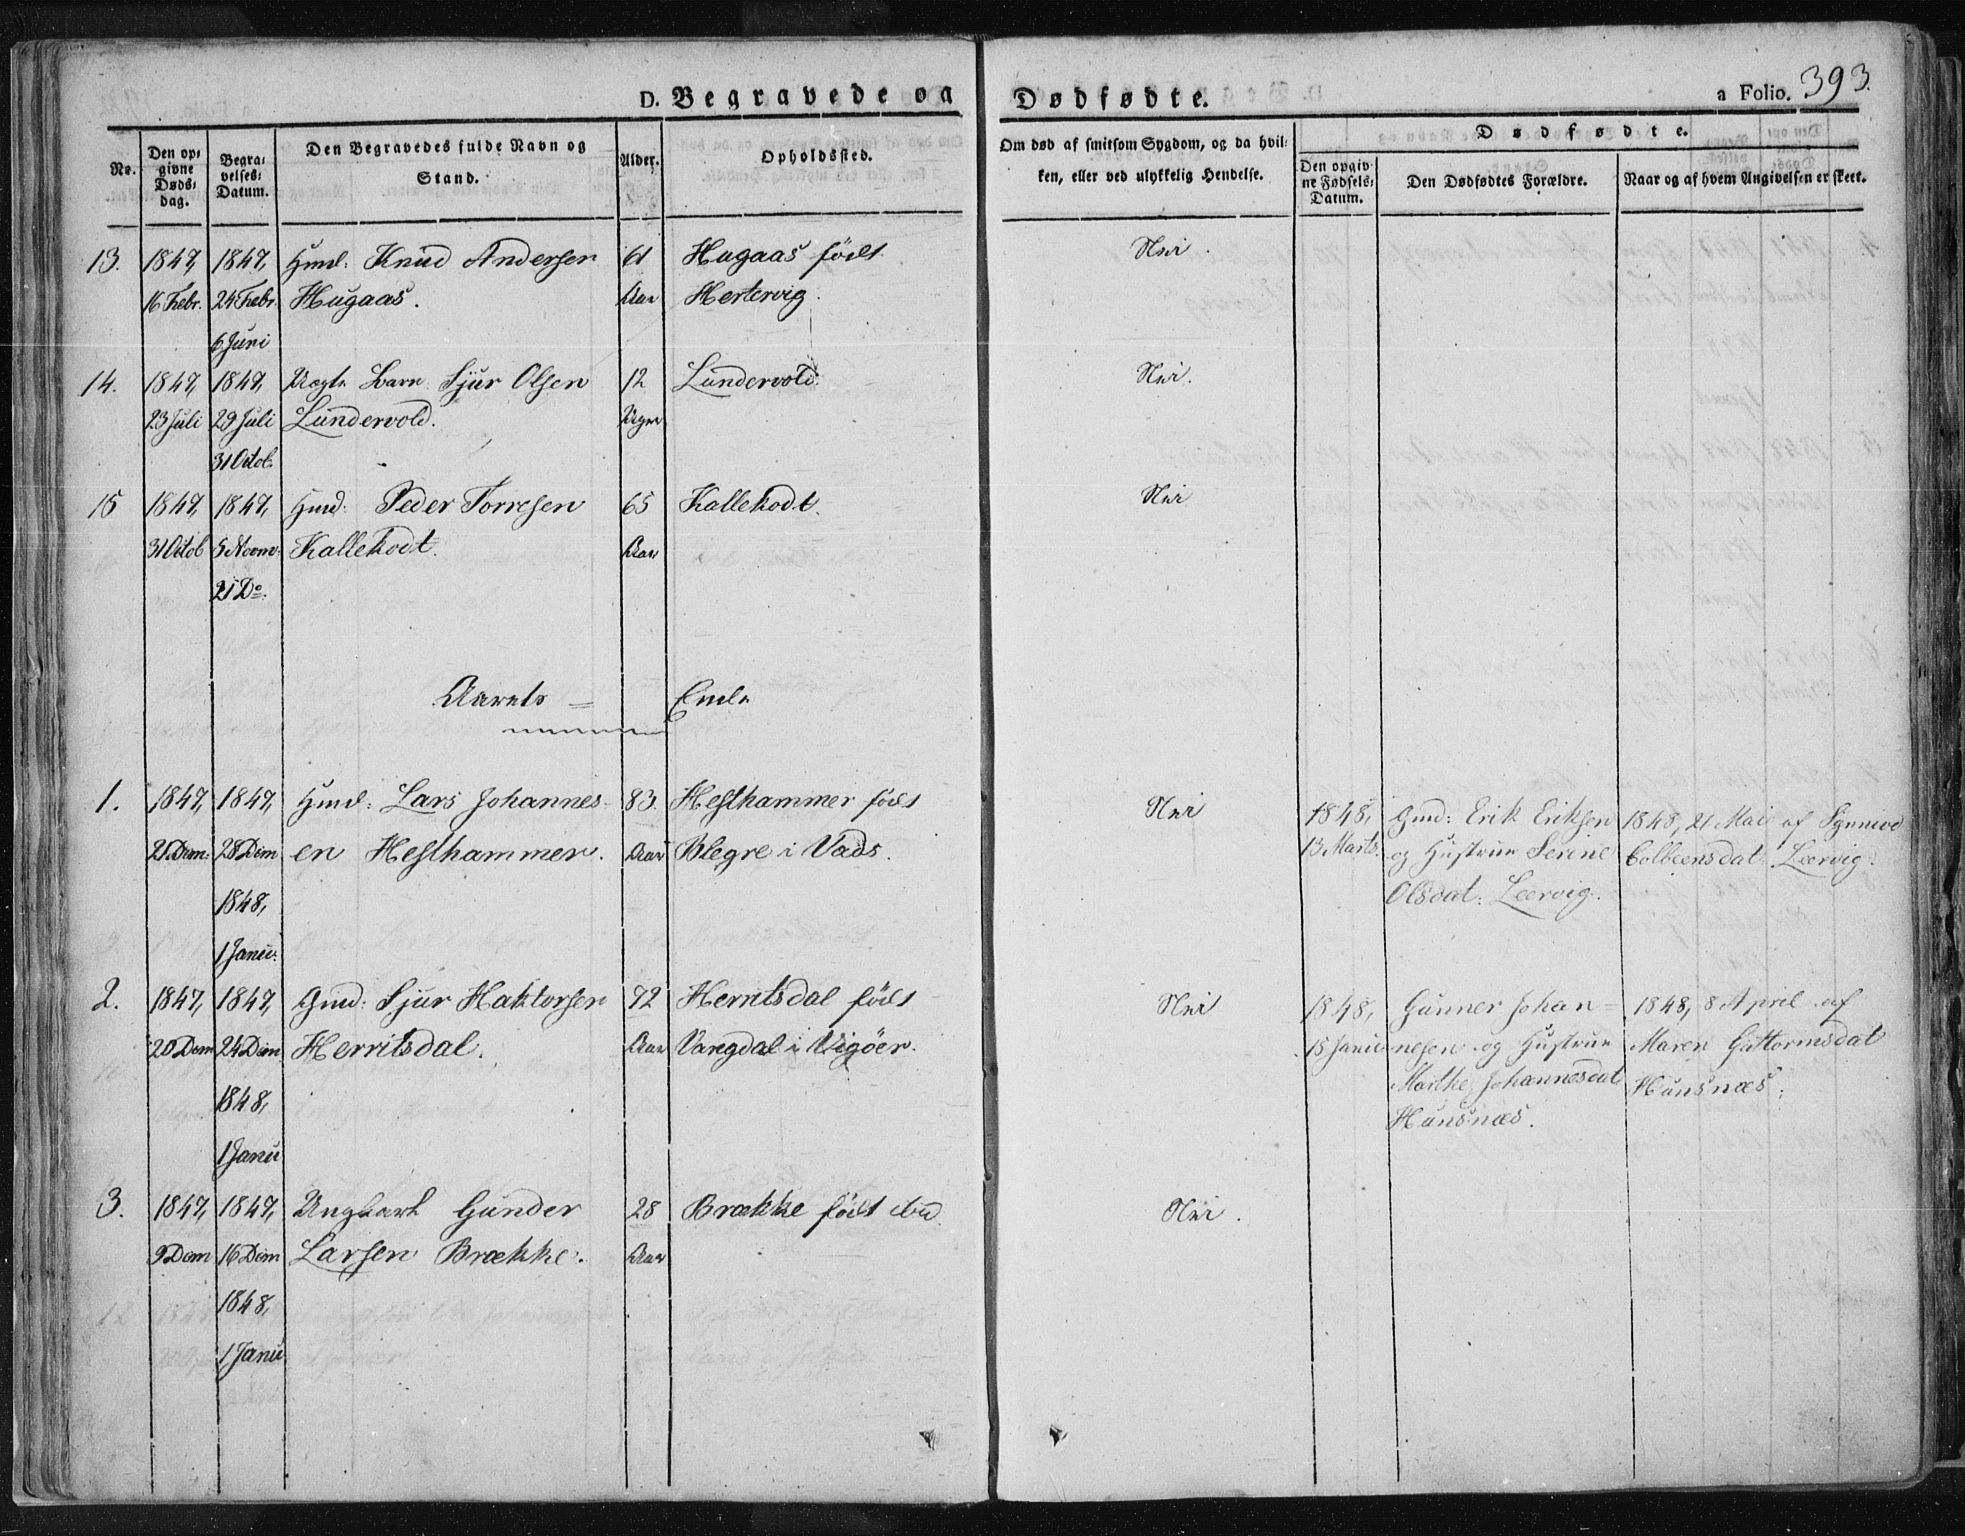 D. Begravede og Dødfødte. a Folio. 393.
No.
Den opgivne Dødsdag.
Begravelses-Datum.
Den Begravedes fulde Navn og Stand.
Alder.
Opholdssted.
Om død af smitsom Sygdom, og da hvilken, eller ved ulykkelig Hendelse.
Dødfødte.
Den opgivne Fødsels-Datum.
Den Dødfødtes Forældre.
Naar og af hvem Angivelsen er skeet.
13. 1847, 1847, Gmd: Knud Andersen 61 Hugaas født Nei.
16 Febr. 24 Febr. Hugaas. Aar Hertervig.
6 Juni
14. 1847, 1847, Uægte Barn Sjur Olsen 12 Lundervold. Nei.
23 Juli 29 Juli Lundervold. Uger
31 Octob.
15 1847, 1847, Hmd: Peder Torresen 65 Kallekodt. Nei
31 Octob 5 Novm: Kallekodt. Aar
21 Do.
Aarets = Ende
1. 1847, 1847, Hmd: Lars Johannes- 83 Hesthammer født Nei 1848, Gmd: Erik Eriksen 1848, 21 Mai af Synneve
21 Dcm: 28 Dcm en Hesthammer. Aar Blegre i Vads. 13 Marts. og Hustrue Serine Colbeensdat: Leervig.
1848, Olsdat: Leervig.
1 Janu:
2. 1847, 1847, Gmd: Sjur Haktorsen 72 Herritsdal født Nei 1848, Gunner Johan- 1848, 8 April af
20 Dcm 24 Dcm Herritsdal. Aar Vangdal i Vigøer. 15 Janu nesen og Hustrue Maren Guttormsdat
1848, Marthe Johannesdat Hunsnæs.
1 Janu Hunsnæs.
3. 1847, 1847, Ungkarl Gunder 28 Brække født ibd. Nei.
9 Dcm 16 Dcm Larsen Brække. Aar
1848,
1 Janu